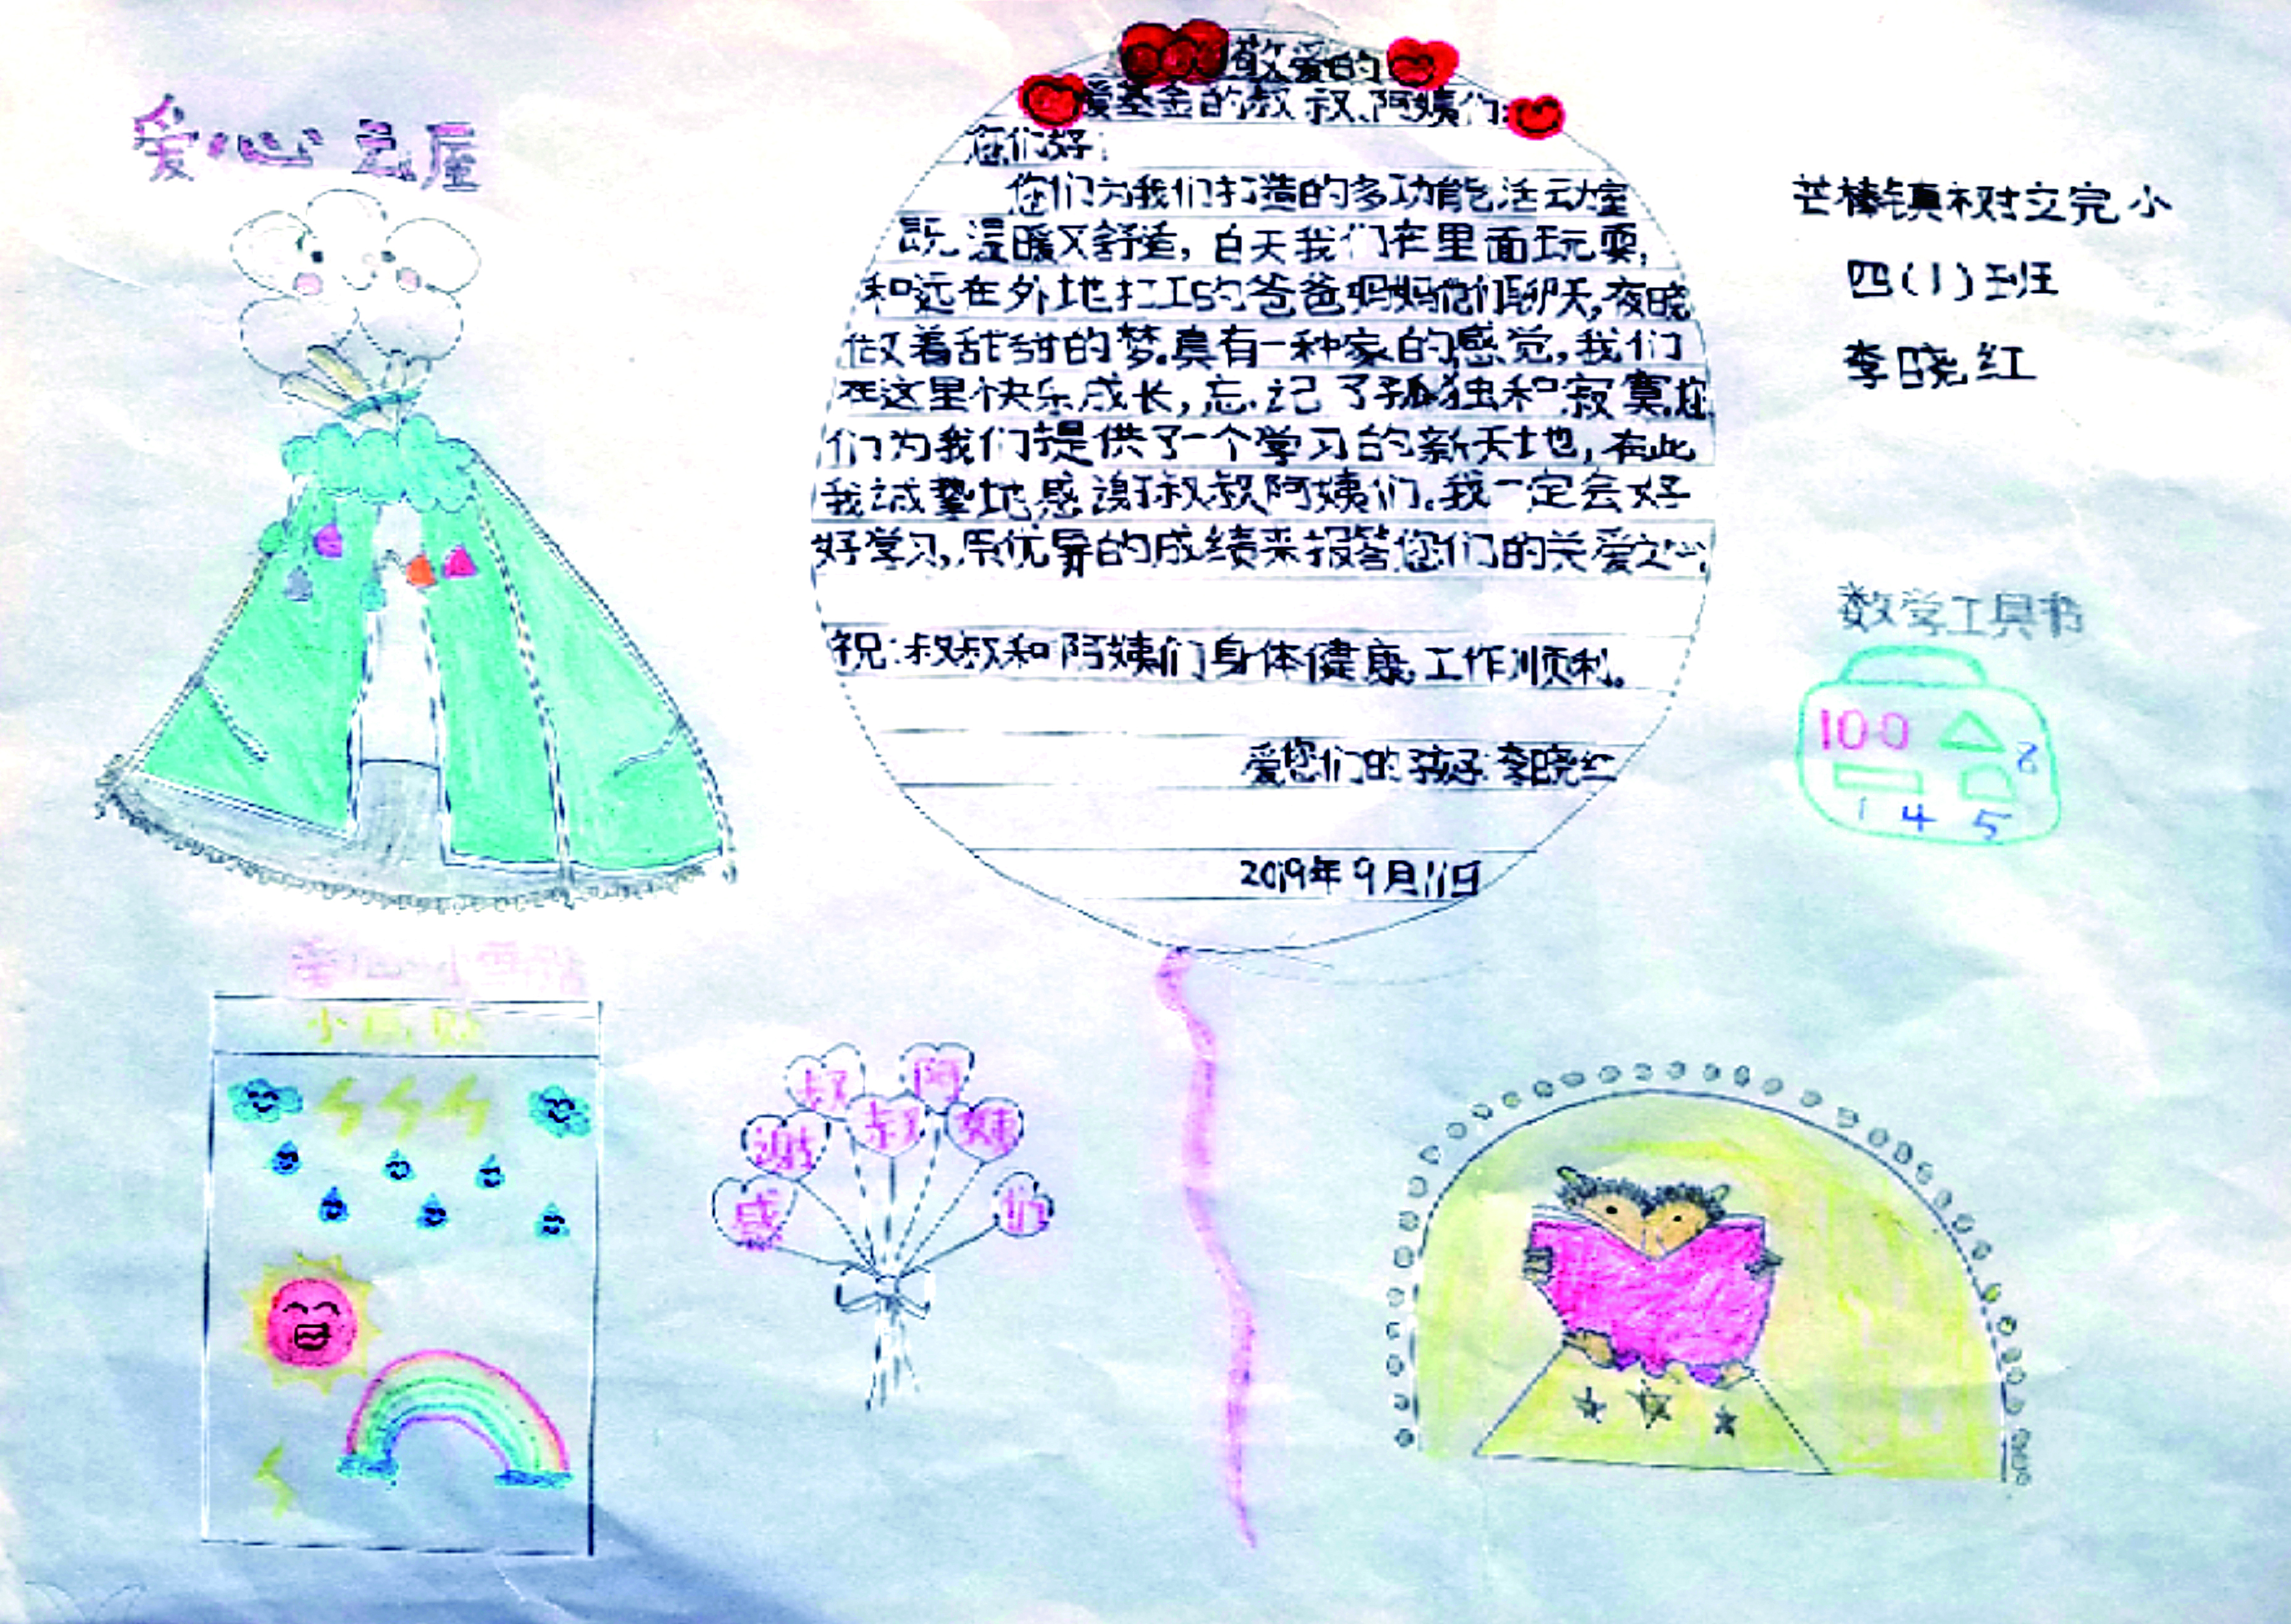 爱心
屋
敬爱的
爱基金的叔叔、阿姨们:
您们好:
您们为我们打造的多功能活动室
既温暖又舒适,白天我们在里面玩耍,
和远在外地打工的爸爸妈妈他们聊天,夜晚
做着甜甜的梦。真有一种家的感觉,我们
在这里快乐成长,忘记了孤独和寂寞,您
们为我们提供了一个学习的新天地,在此
我诚挚地感谢叔叔阿姨们。我一定会好
好学习,用优异的成绩来报答您们的关爱之心。
祝:叔叔和阿姨们身体健康,工作顺利。
爱您们的孩子:李晓红
2019年9月11日
芒棒镇树文完小
四(1)班
李晓红
数学工具书
100
2
1 4 5
小 贴
感谢叔叔阿姨们